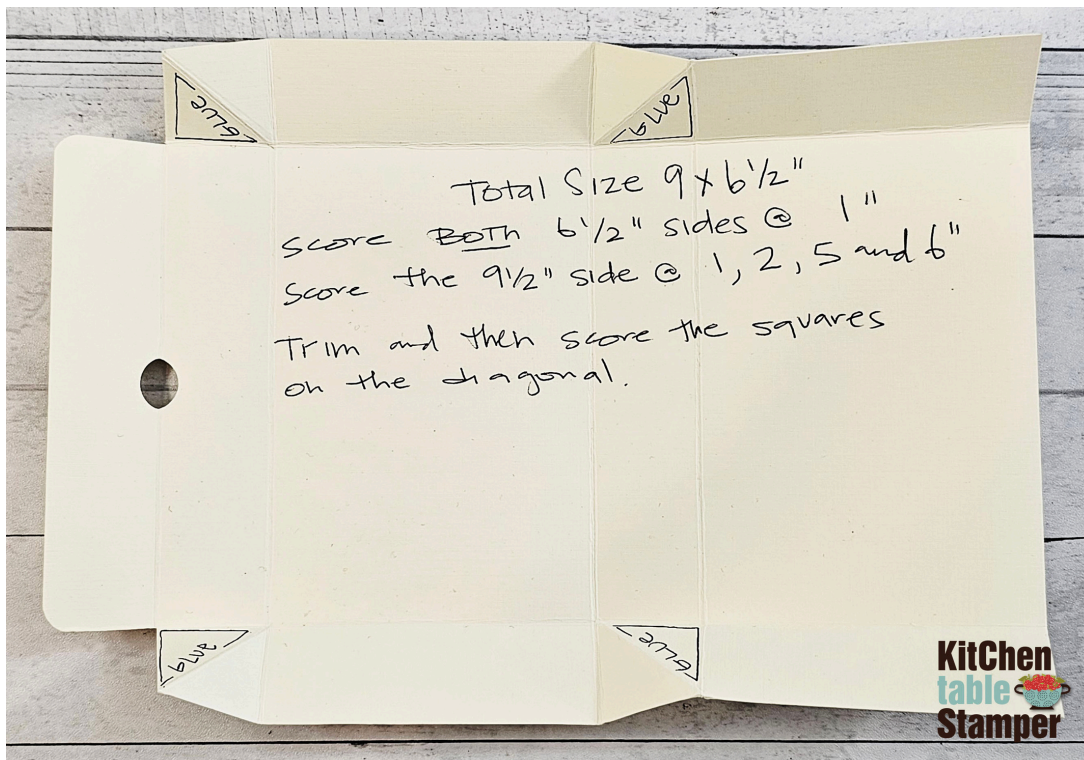 blue
blue
Total Size 9 x 6 1/2"
Score BOTH 6 1/2" sides @ 1"
Score the 9 1/2" side @ 1, 2, 5 and 6"
Trim and then score the squares
on the diagonal.
blue
blue
KitChen
table
Stamper